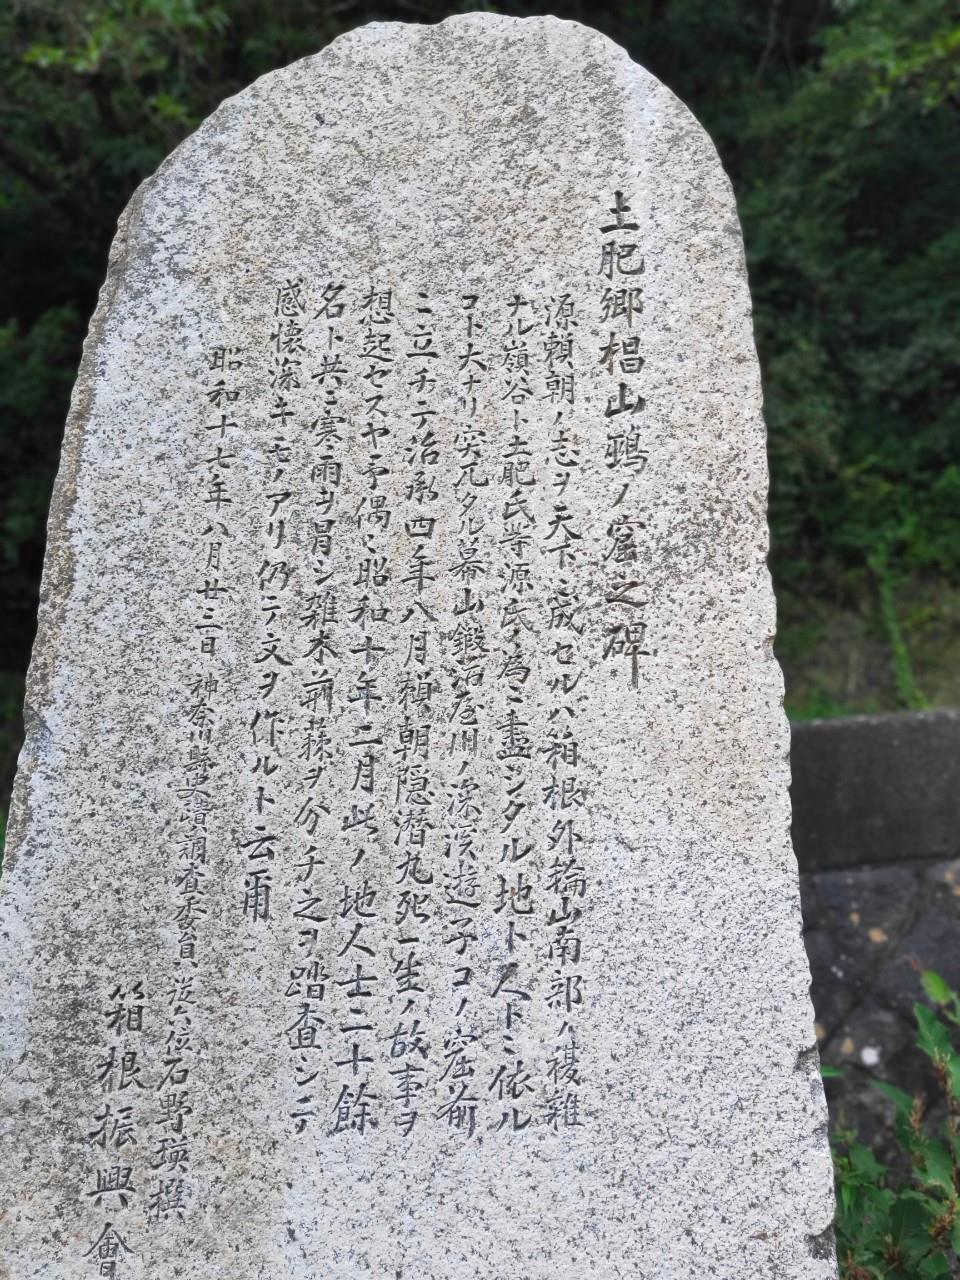 土肥郷椙山鵐ノ窟之碑
源頼朝ノ志ヲ天下ニ成セルハ箱根外輪山南部ノ複雜
ナル嶺谷ト土肥氏等源氏ノ為ニ盡シタル地ト人トニ依ル
コト大ナリ突兀タル幕山鍛冶屋川ノ深渓遊子コノ窟前
ニ立チテ治承四年八月頼朝隠潜九死一生ノ故事ヲ
想起セスヤ予偶々昭和十年二月此ノ地人士二十餘
名ト共ニ寒雨ヲ冒シ雑木荊蕀ヲ分チ之ヲ踏査シテ
感懐深キモノアリ仍テ文ヲ作ルト云爾
昭和十七年八月廿三日
神奈川縣史蹟調査委員 従六位石野瑛撰
箱根振興會